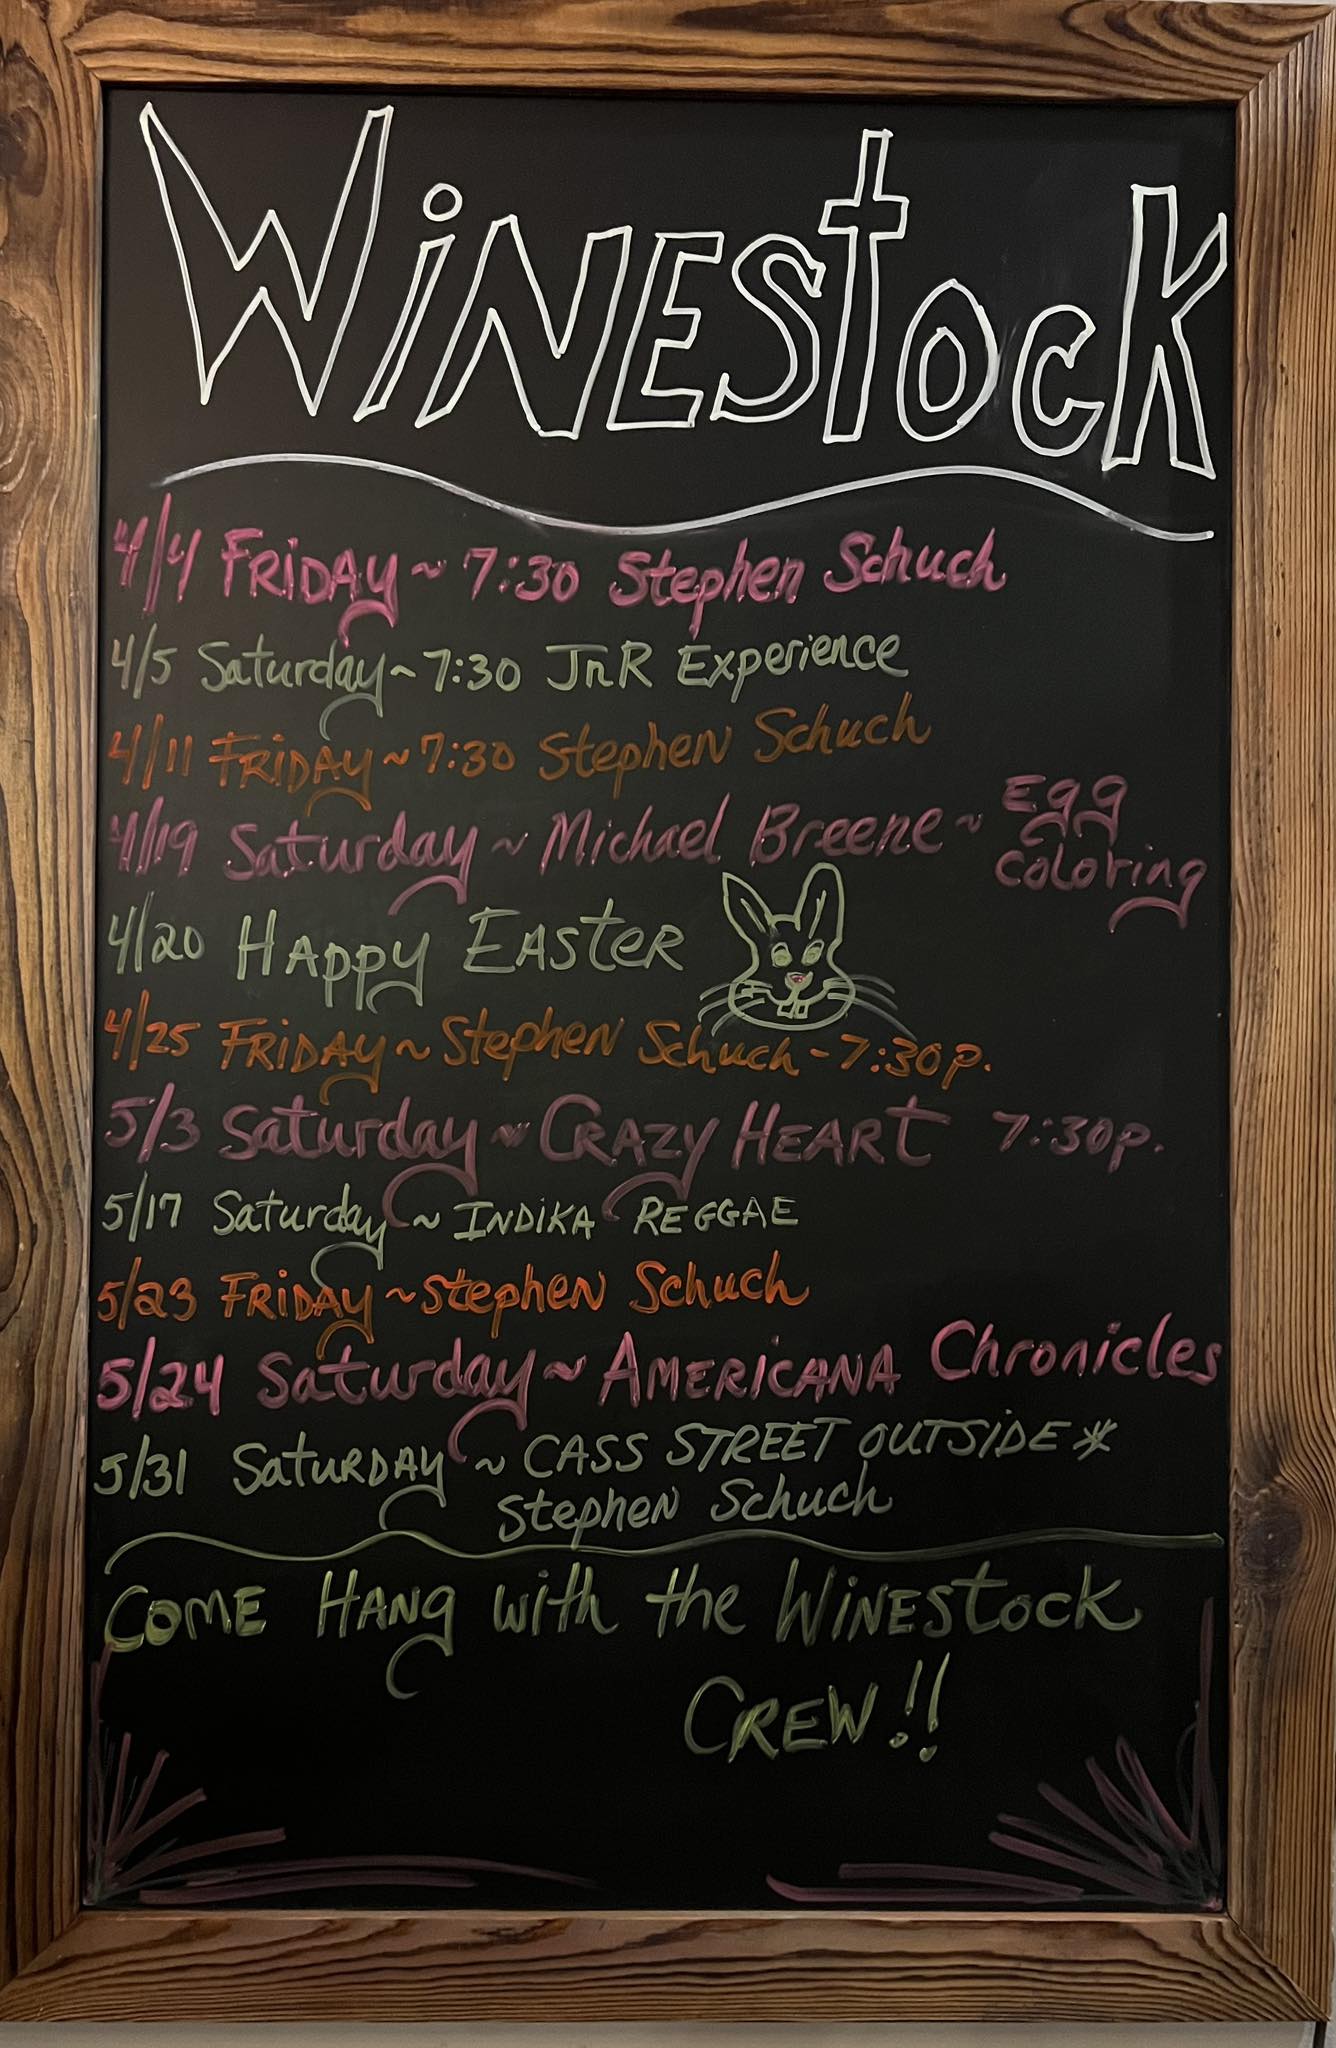 WiNEStocK
4/4 FRiDAy ~ 7:30 Stephen Schuch
4/5 Saturday ~ 7:30 JnR Experience
4/11 FRiDAy ~ 7:30 StepheN Schuch
4/19 Saturday ~ Michael Breene ~ Egg
Coloring
4/20 HAppy EAStER
4/25 FRiDAy ~ StepheN Schuch - 7:30p.
5/3 Saturday ~ CRAZY HEARt 7:30p.
5/17 Saturday ~ INDiKA REGGAE
5/23 FRiDAy ~ StepheN Schuch
5/24 Saturday ~ AMERiCANA Chronicles
5/31 SatURDAy ~ CASS STREET OUTSiDE *
StepheN Schuch
COME HANg with the WiNEStocK
CREW!!